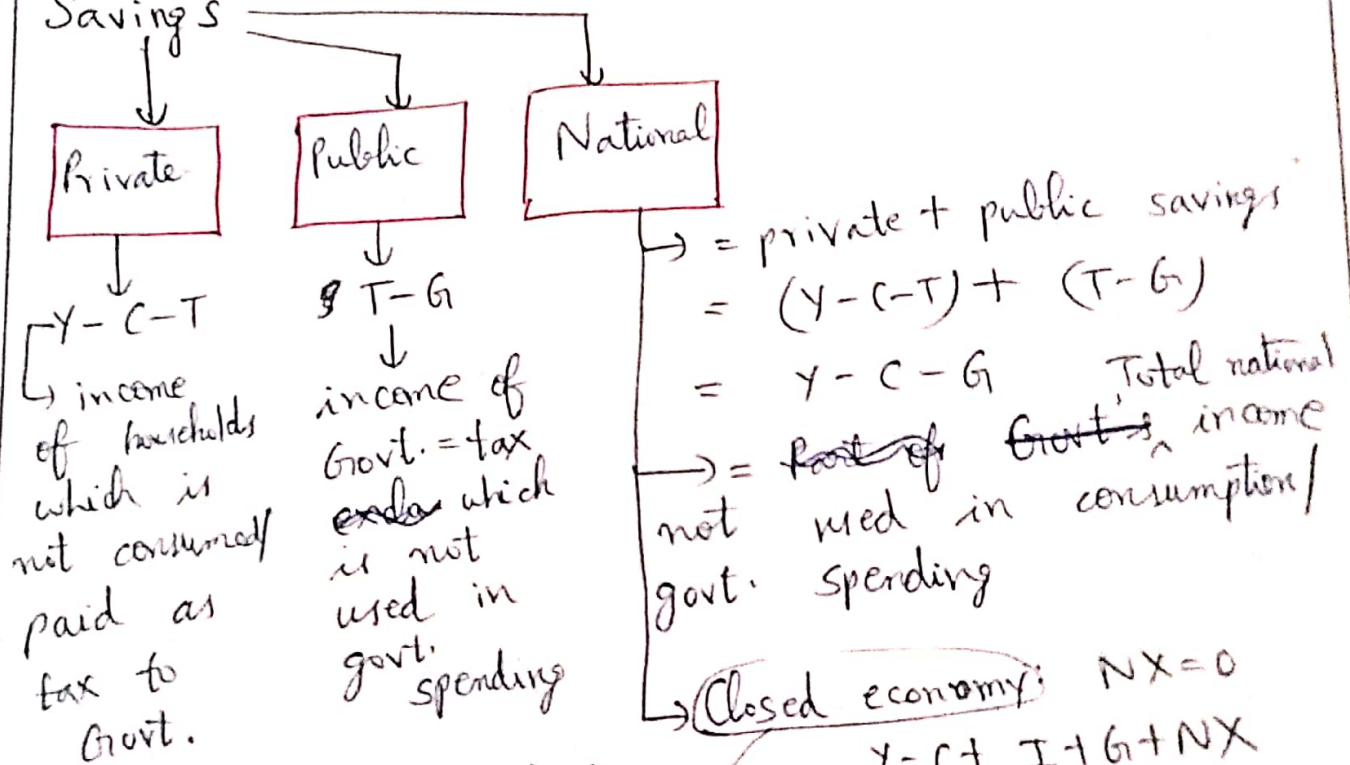 Savings
Private
Public
National
Y - C - T
income
of households
which is
not consumed/
paid as
tax to
Govt.
T - G
income of
Govt. = tax
which
is not
used in
govt.
spending
= private + public savings
= (Y - C - T) + (T - G)
= Y - C - G
Total national
= Part of Govt's income
not used in consumption/
govt. spending
Closed economy: NX = 0
Y = C + I + G + NX